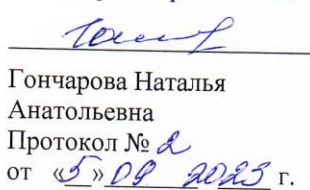 Гончарова Наталья
Анатольевна
Протокол № 2
от «5» 09 2023 г.